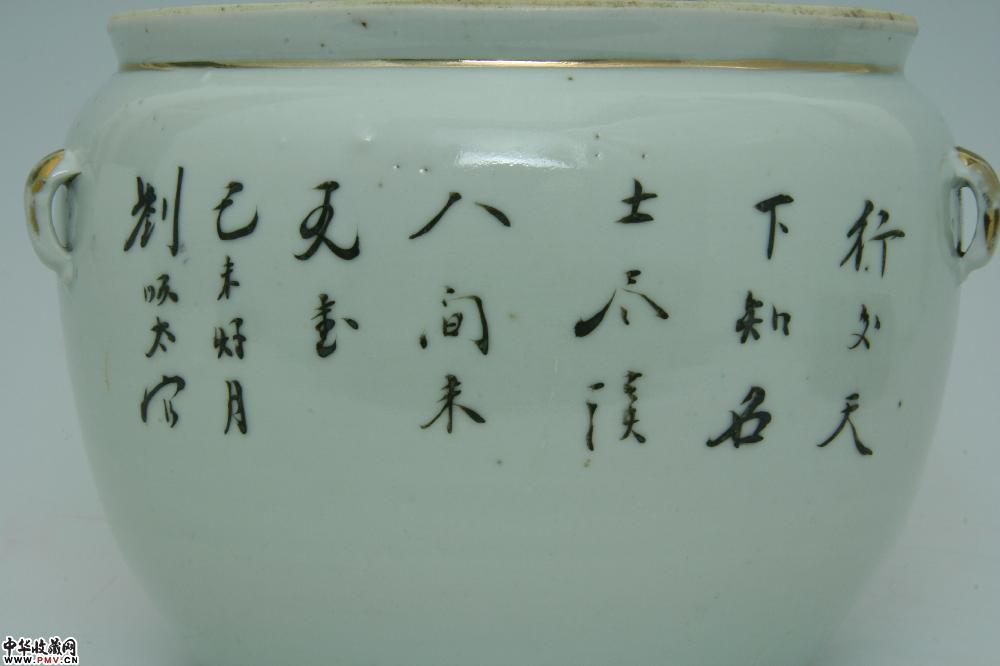 行文天
下知名
士尽读
人间未
见書
己未好月
劉太
中华收藏网
WWW.PMV.CN